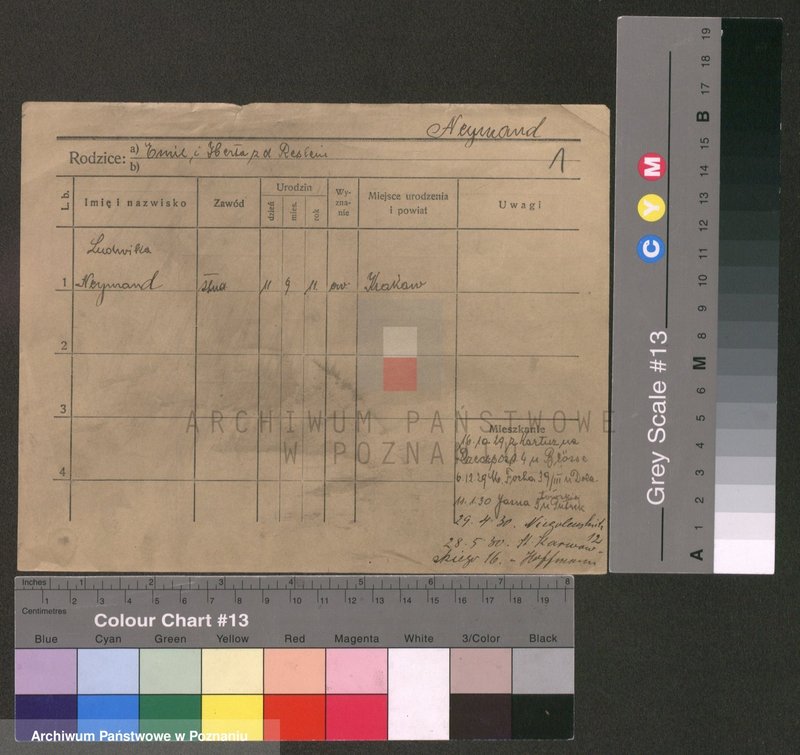 Neymand
Rodzice: a) Emil, i Herta, z d
b)
1
L. b.
Imię i nazwisko
Zawód
Urodzin
dzień
mies.
rok
Wy-
zna-
nie
Miejsce urodzenia
i powiat
Uwagi
Ludwika
1 Neymand stud 11 9 11. ew Kraków
2
3
4
Mieszkanie
16.10.29, z Kartuz na
4 u
6.12.29 Focha 39/III u
11.1.30 Jasna
29. 4. 30. Niegolewskich
12
28. 5. 30. H. Karwow-
skiego 16. - Hoffmann
ARCHIWUM PAŃSTWOWE
W POZNA
Inches 1 2 3 4 5 6 7 8
Centimetres 1 2 3 4 5 6 7 8 9 10 11 12 13 14 15 16 17 18 19
Colour Chart #13
Blue Cyan Green Yellow Red Magenta White 3/Color Black
Archiwum Państwowe w Poznaniu
Grey Scale #13
C Y M
A 1 2 3 4 5 6 M 8 9 10 11 12 13 14 15 B 17 18 19